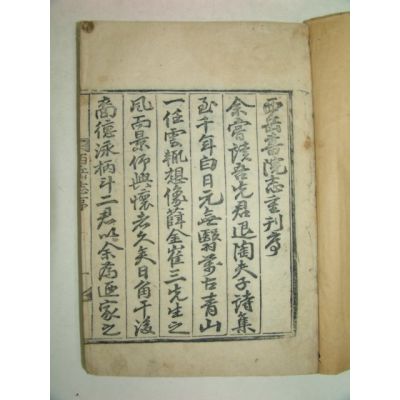 西岳書院志重刊序
余嘗讀吾先君退陶夫子詩集
至千年白日元無翳萬古青山
一任雲輒想像薛金崔三先生之
風而景仰興懷者久矣日角干後
裔德泳柄斗二君以余爲逌家之
西岳志序